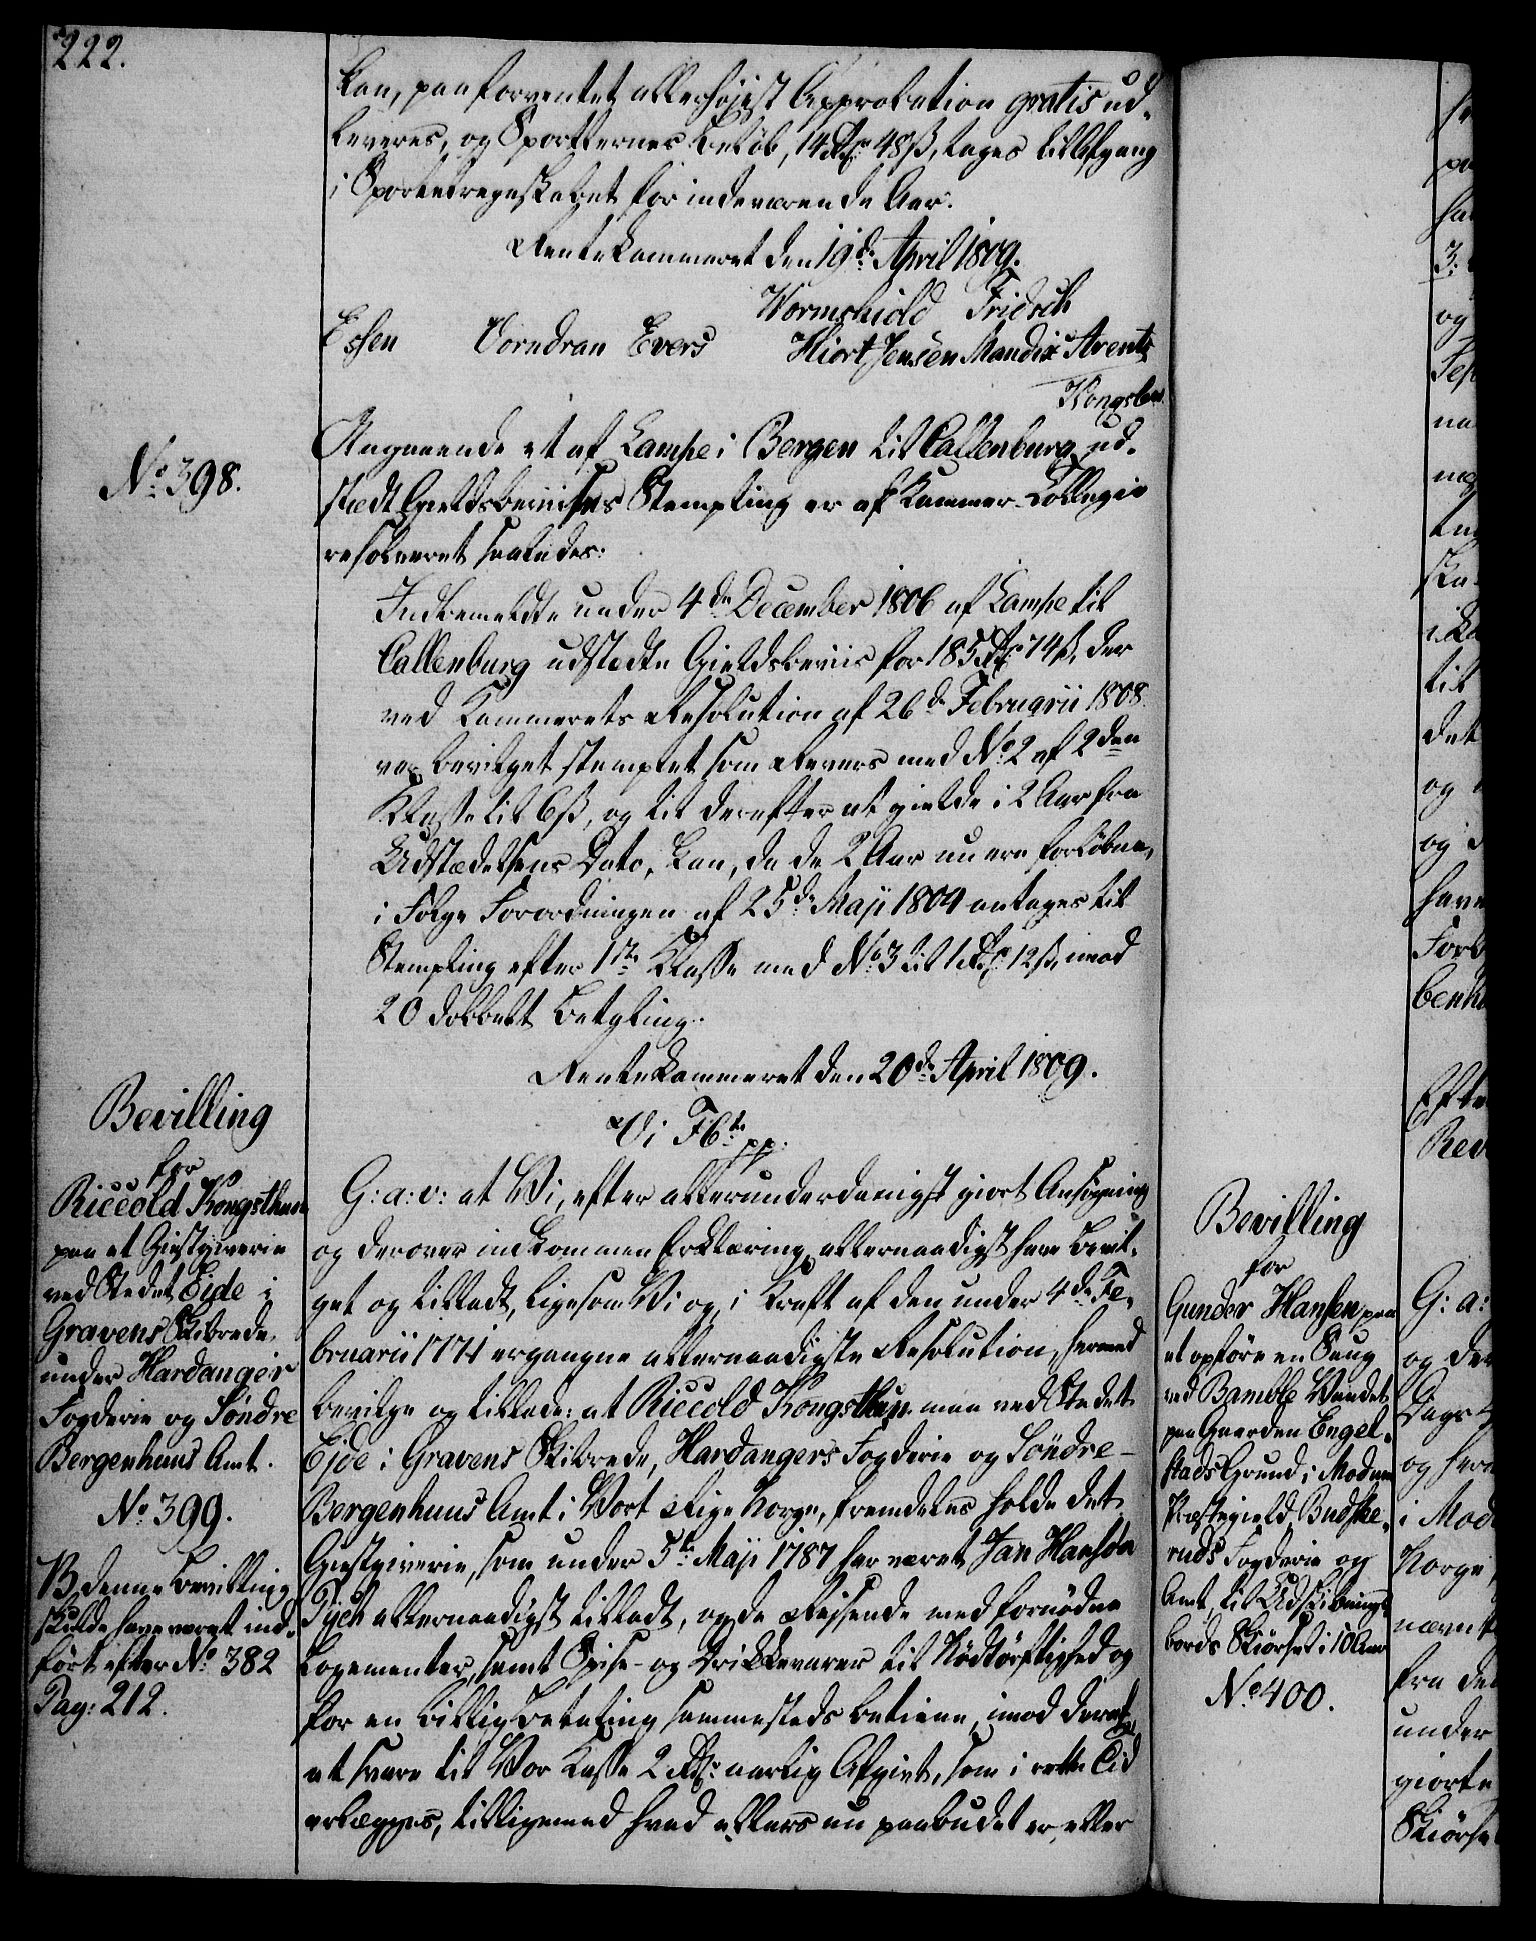 222.
kan, paa forventet allerhøjest Approbation gratis ud-
leveres, og Sportlernes Beløb, 14 Rdlr 48 ß, tages til Afgang
i Sportelregnskabet for indeværende Aar.
Rentekammeret den 19de April 1809.
Wormskiold Fridsch
Essen Vorndran Evers Hiort Jensen Mandix Arentz
No: 398.
Angaaende et af Lampe i Bergen til Callenburg ud-
stædt Gieldsbeviises Stempling er af Kammer-Collegio
resolveret saaledes:
Indbemeldte under 4de December 1806 af Lampe til
Callenburg udstedte Gieldsbeviis for 185 Rdlr 74 ß, der
ved Kammerets Resolution af 26de Februarii 1808
var bevilget stemplet som Revers med No: 2 af 2den
Klasse til 6 ß, og til derefter at gielde i 2 Aar fra
Udstædelsens Dato, kan, da de 2 Aar nu ere forløbne,
i Følge Forordningen af 25de Maji 1804 antages til
Stempling efter 1ste Klasse med No: 3 til 1 Rdlr 12 ß, imod
20 dobbelt Betaling.
Rentekammeret den 20de April 1809.
Bevilling
for
Riccold Kongsthun
paa et Giestgiverie
ved Stedet Eide i
Gravens Skibrede,
under Hardanger
Fogderie og Søndre
Bergenhuus Amt.
No: 399.
NB denne Bevilling
skulde have været ind-
ført efter No: 382
Pag: 212.
Vi F 6te pp:
G: a: v: at Vi, efter allerunderdanigst giort Ansøgning
og derover indkommen Erklæring, allernaadigst have bevil-
get og tilladt, ligesom Vi og, i Kraft af den under 4de Fe-
bruarii 1771 ergangne allernaadigste Resolution, hermed
bevilge og tillade: at Riccold Kongsthun maa ved Stedet
Eide i Gravens Skibrede, Hardangers Fogderie og Søndre-
Bergenhuus Amt i Vort Rige Norge, fremdeles holde det
Giestgiverie, som under 5te Maji 1787 har været Jan Hansen
allernaadigst tilladt, og de Reisende med fornødne
Logementer, samt Spise- og Drikkevarer til Nødtørftighed og
for en billig Betaling sammesteds betiene, imod deraf
at svare til Vor Kasse 2 Rdlr: aarlig Afgivt, som i rette Tid
erlægges, tilligemed hvad ellers nu paabudet er, eller
Bevilling
for
Gunder Hansen paa
at opføre en Saug
ved Bamble Vandet
paa Gaarden Engel-
stads Grund i Modum
Præstegield Budske-
ruds Fogderie og
Amt, til Udskibnings-
bords Skiørsel i 10 Aar
No: 400.
3:
og
til
det
og
og
Efte
G: a:
og der
Dags
i Mod
Norge
fra de
under
giorte
Skiørse